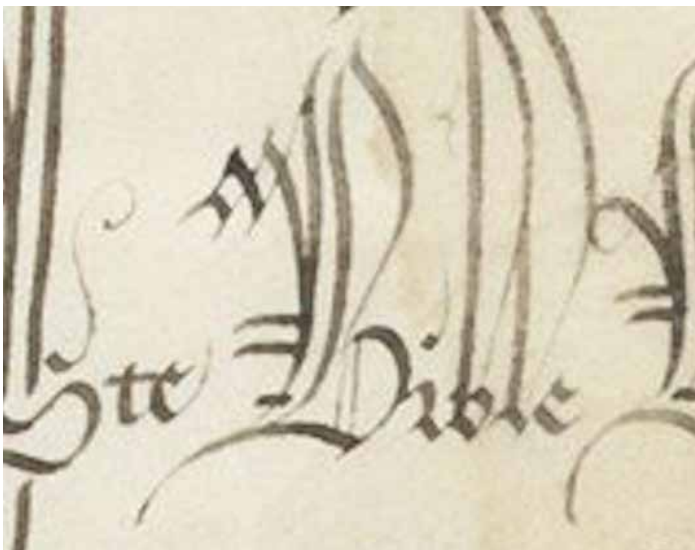 ste Bible